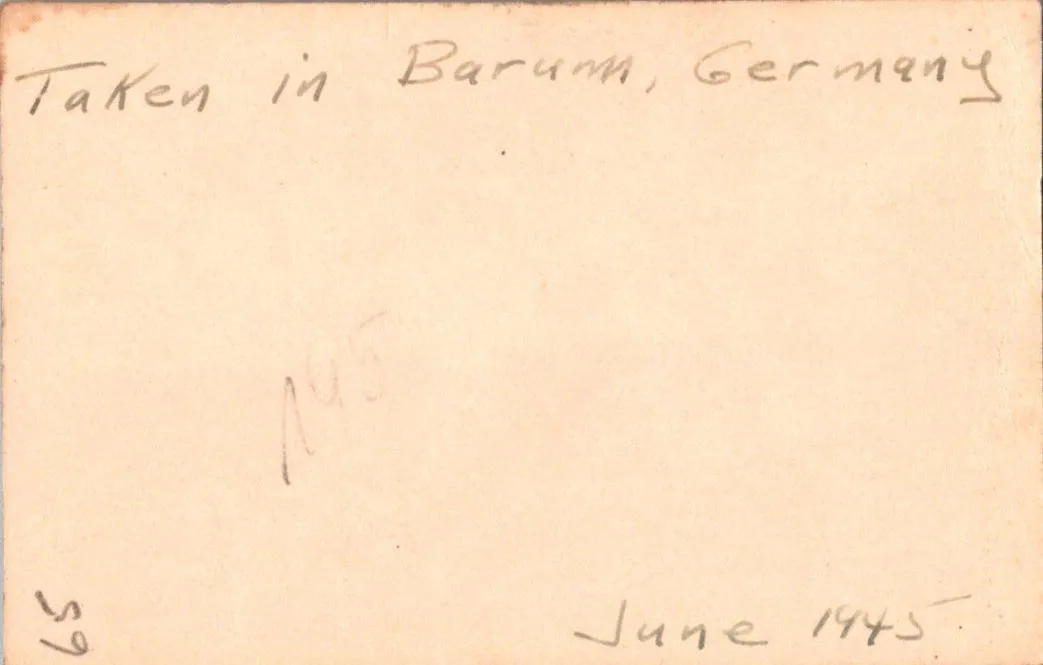 Taken in Barum, Germany
195
65
June 1945